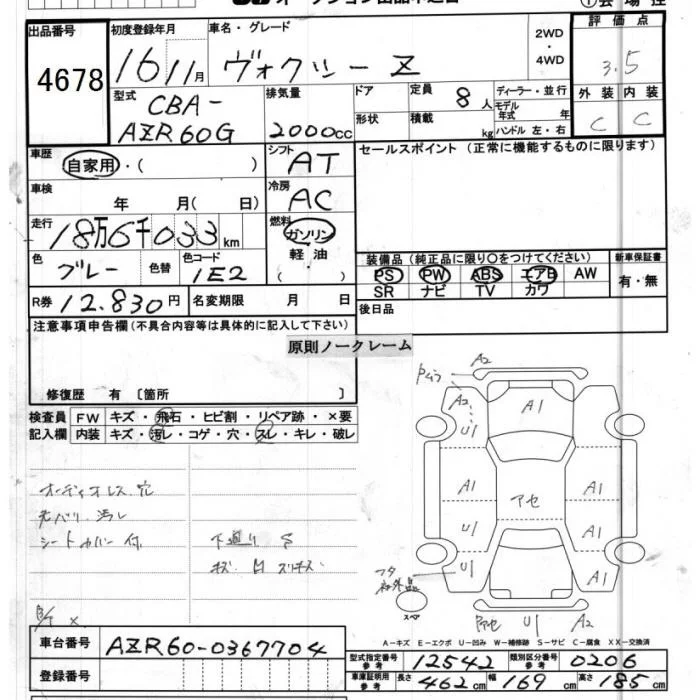 出品番号
4678
初度登録年月
16 11月
車名・グレード
ヴォクシー Z
2WD
・
4WD
評価点
3.5
外装 内装
C C
型式
CBA-
AZR60G
排気量
2000cc
ドア
形状
定員 8人
積載 kg
ディーラー・並行
モデル年式 年
ハンドル 左・右
車歴
自家用・( )
シフト
AT
セールスポイント (正常に機能するものに限ります)
車検
年 月( 日)
冷房
AC
走行
18万6千033km
燃料
ガソリン
軽油
・
( )
色
グレー
色替
色コード
1E2
装備品 (純正品に限り○をつけてください)
PS PW ABS エアB AW
SR ナビ TV カワ
新車保証書
有・無
R券 12,830円
名変期限 月 日
後日品
注意事項申告欄(不具合内容等は具体的に記入して下さい)
原則ノークレーム
修復歴 有〔箇所 〕
検査員
記入欄
FW キズ・飛石・ヒビ割・リペア跡・×要
内装 キズ・汚レ・コゲ・穴・スレ・キレ・破レ
オーディオレス 穴
汚レ
シートカバー付
下廻り S
A2
A2
U1
A1
A1
U1
U1
アセ
A1
A1
A1
フタ
社外品
スペア
U1
A2
A-キズ E-エクボ U-凹み W-補修跡 S-サビ C-腐食 XX-交換済
車台番号
AZR60-0367704
登録番号
型式指定番号
参考
12542
類別区分番号
参考
0206
車庫証明用
参考
長さ 462cm
幅 169cm
高さ 185cm